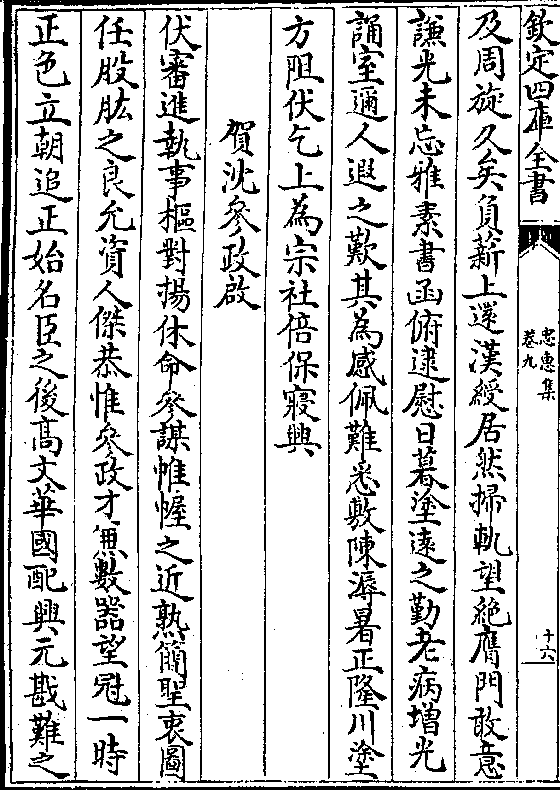 欽定四庫全書
忠惠集
卷九
十六
及周旋久矣負薪上還漢綬居然掃軌望絶膺門敢意
謙光未忘雅素書函俯逮慰日暮塗遠之勤老病增光
誦室邇人遐之歎其為感佩難悉敷陳溽暑正隆川塗
方阻伏乞上為宗社倍保寢興
賀沈參政啟
伏審進執事樞對揚休命參謀帷幄之近熟簡聖衷圖
任股肱之良允資人傑恭惟參政才無數器望冠一時
正色立朝追正始名臣之後髙文華國配興元戡難之